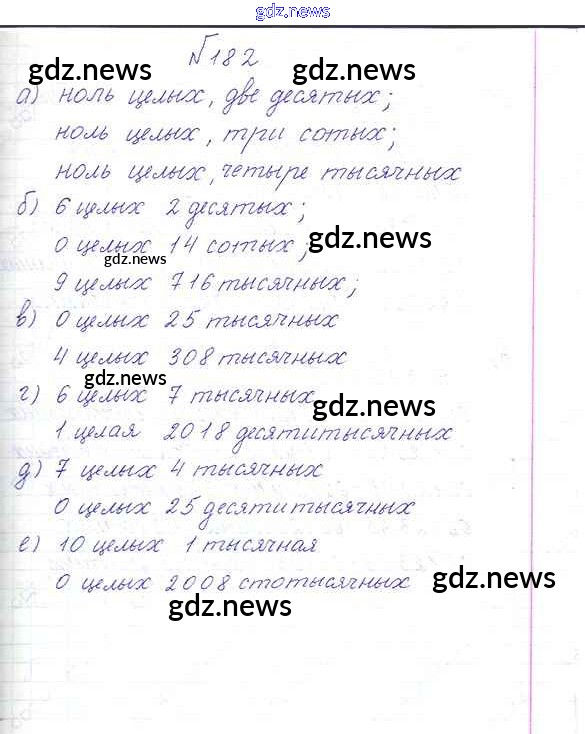 gdz.news
№182
gdz.news gdz.news
а) ноль целых, две десятых;
ноль целых, три сотых;
ноль целых, четыре тысячных
б) 6 целых 2 десятых;
0 целых 14 сотых;
gdz.news
gdz.news
9 целых 716 тысячных;
в) 0 целых 25 тысячных
4 целых 308 тысячных
gdz.news
г) 6 целых 7 тысячных
gdz.news
1 целая 2018 десятитысячных
д) 7 целых 4 тысячных
0 целых 25 десятитысячных
е) 10 целых 1 тысячная
0 целых 2008 стотысячных
gdz.news
gdz.news